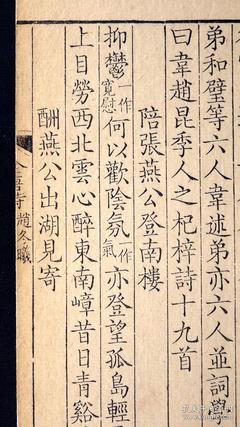 弟和璧等六人韋述弟亦六人並詞學
曰韋趙昆季人之杞梓詩十九首
陪張燕公登南樓
抑鬱一作寬慰何以歡陰氛一作氣亦登望孤島輕
上目勞西北雲心醉東南嶂昔日青谿
酬燕公出湖見寄
趙冬曦